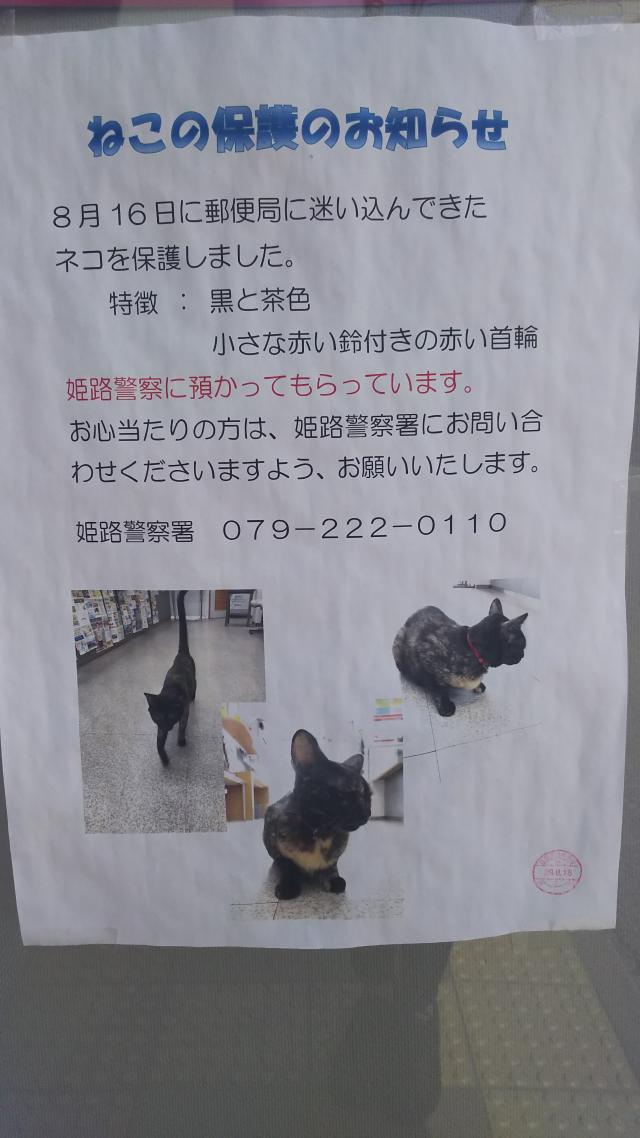 ねこの保護のお知らせ
8月16日に郵便局に迷い込んできた
ネコを保護しました。
特徴 : 黒と茶色
小さな赤い鈴付きの赤い首輪
姫路警察に預かってもらっています。
お心当たりの方は、姫路警察署にお問い合
わせくださいますよう、お願いいたします。
姫路警察署 079-222-0110